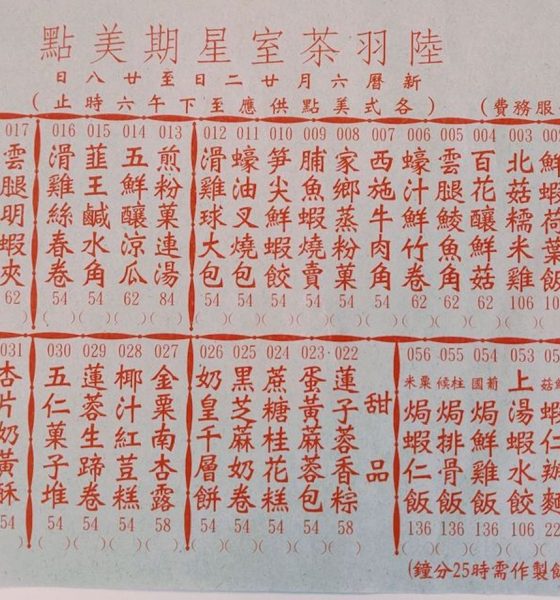 陸羽茶室星期美點
新曆六月廿二日至廿八日
(各式美點供應至下午六時止)
服務費)
鮮蝦荷葉飯
003 北菇糯米雞 106
004 百花釀鮮菇 62
005 雲腿鯪魚角 62
006 蠔汁鮮竹卷 62
007 西施牛肉角 54
008 家鄉蒸粉菓 54
009 脯魚蝦燒賣 54
010 笋尖鮮蝦餃 54
011 蠔油叉燒包 54
012 滑雞球大包 54
013 煎粉菓連湯 84
014 五鮮釀凉瓜 62
015 韮王鹹水角 54
016 滑雞絲春卷 54
017 雲腿明蝦夾 62
053 上湯蝦水餃 106
054 葡國焗鮮雞飯 136
055 柱候焗排骨飯 136
056 粟米焗蝦仁飯 136
甜品
022 蓮子蓉香粽 58
023 蛋黃蔴蓉包 54
024 蔗糖桂花糕 54
025 黑芝蔴奶卷 54
026 奶皇千層餅 54
027 金粟南杏露 58
028 椰汁紅荳糕 54
029 蓮蓉生蹄卷 54
030 五仁菓子堆 54
031 杏片奶黃酥 54
製作需時25分鐘)